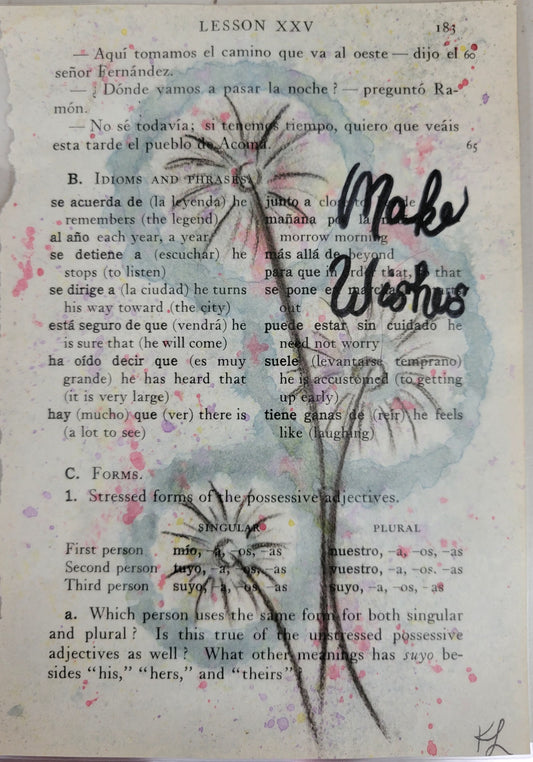 LESSON XXV 183
— Aquí tomamos el camino que va al oeste — dijo el 60
señor Fernández.
— ¿Dónde vamos a pasar la noche? — preguntó Ra-
món.
— No sé todavía; si tenemos tiempo, quiero que veáis
esta tarde el pueblo de Acoma. 65
B. IDIOMS AND PHRASES
se acuerda de (la leyenda) he
remembers (the legend)
al año each year, a year
se detiene a (escuchar) he
stops (to listen)
se dirige a (la ciudad) he turns
his way toward (the city)
está seguro de que (vendrá) he
is sure that (he will come)
ha oído decir que (es muy
grande) he has heard that
(it is very large)
hay (mucho) que (ver) there is
(a lot to see)
junto a close to
mañana por la
morrow morning
más allá de beyond
para que in order that, that
se pone en
out
puede estar sin cuidado he
need not worry
suele (levantarse temprano)
he is accustomed (to getting
up early)
tiene ganas de (reír) he feels
like (laughing)
Make
Wishes
C. FORMS.
1. Stressed forms of the possessive adjectives.
SINGULAR PLURAL
First person mío, -a, -os, -as nuestro, -a, -os, -as
Second person tuyo, -a, -os, -as vuestro, -a, -os, -as
Third person suyo, -a, -os, -as suyo, -a, -os, -as
a. Which person uses the same form for both singular
and plural? Is this true of the unstressed possessive
adjectives as well? What other meanings has suyo be-
sides "his," "hers," and "theirs"?
KL